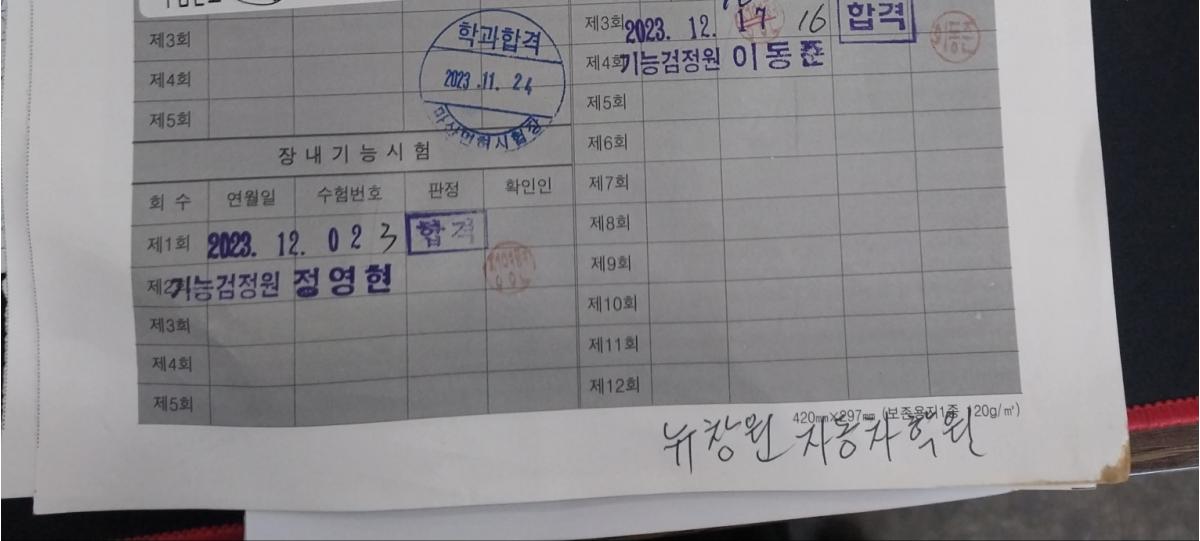 제3회
제4회
제5회
학과합격
2023.11.24
마산면허시험장
장내기능시험
회 수 연월일 수험번호 판정 확인인
제1회 2023. 12. 02 3 합격
제2회 기능검정원 정영현
제3회
제4회
제5회
제3회 2023. 12. 17 16 합격
제4회 기능검정원 이동준
제5회
제6회
제7회
제8회
제9회
제10회
제11회
제12회
420㎜×297㎜ (보존용지1종 120g/㎡)
뉴창원 자동차학원